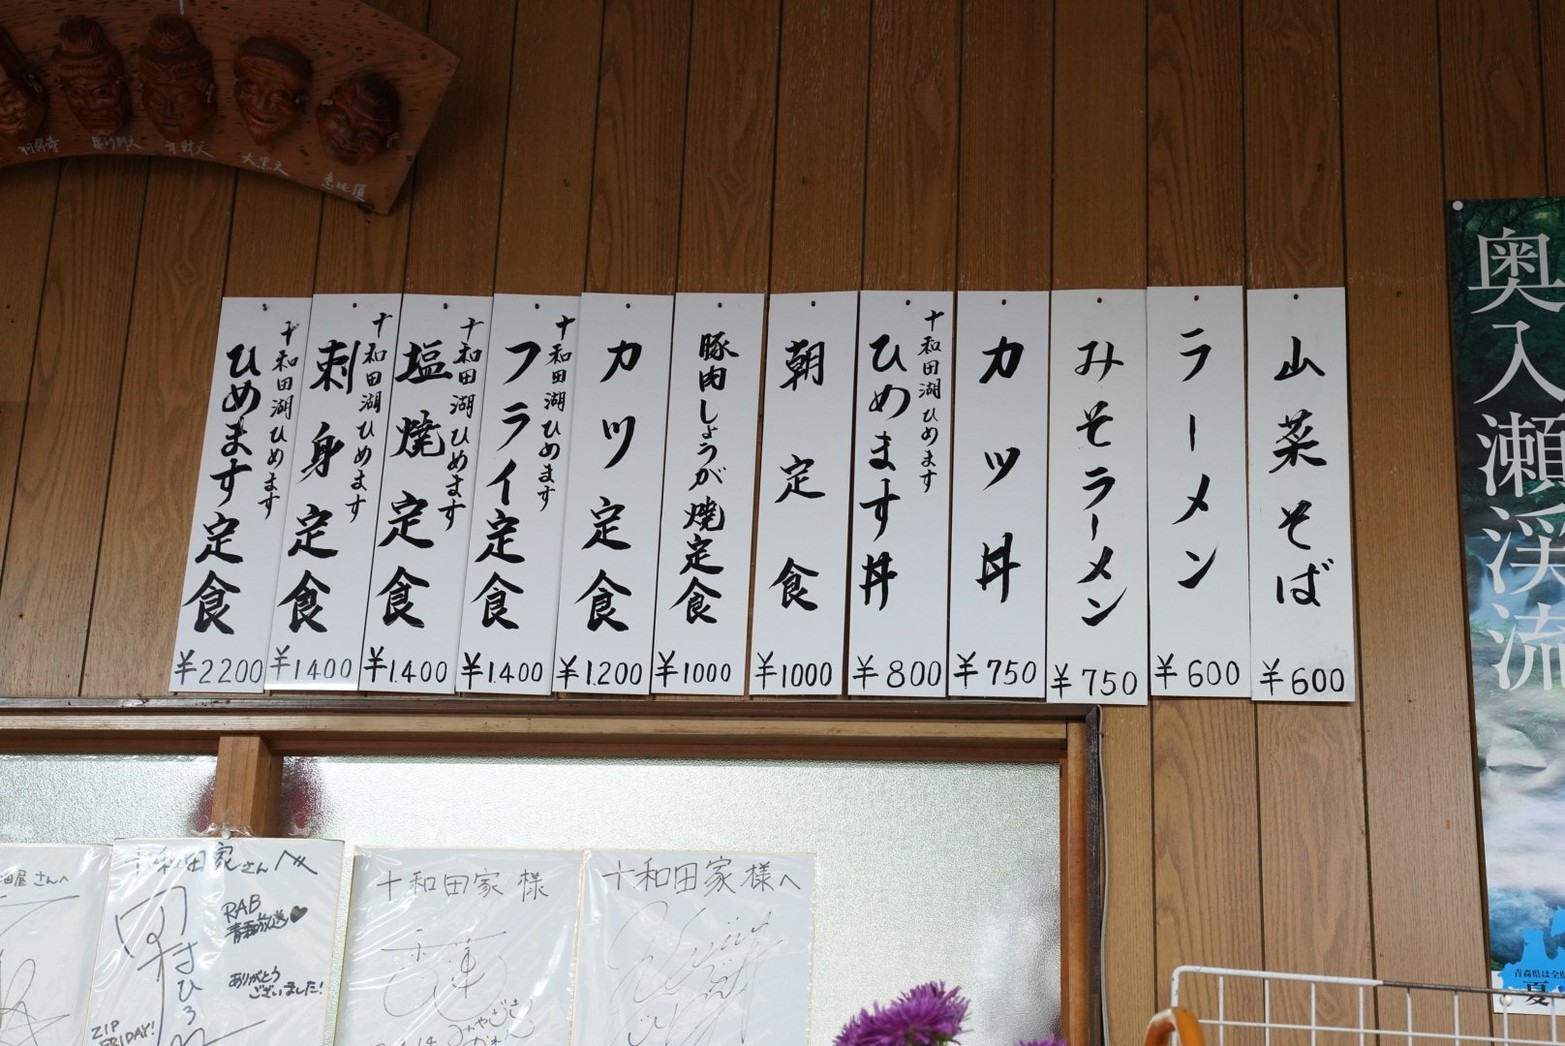 山菜そば
¥600
ラーメン
¥600
みそラーメン
¥750
カツ丼
¥750
十和田湖ひめます
ひめます丼
¥800
朝定食
¥1000
豚肉しょうが焼定食
¥1000
カツ定食
¥1.200
十和田湖ひめます
フライ定食
¥1.400
十和田湖ひめます
塩焼定食
¥1.400
十和田湖ひめます
刺身定食
¥1400
十和田湖ひめます
ひめます定食
¥2200
奥入瀬渓流
青森県は全
夏
弁財天
大黒天
恵比須
さんへ
十和田家さんへ
RAB
青森放送♥
ありがとう
ございました!
ZIP
FRIDAY!
十和田家様
十和田家様へ